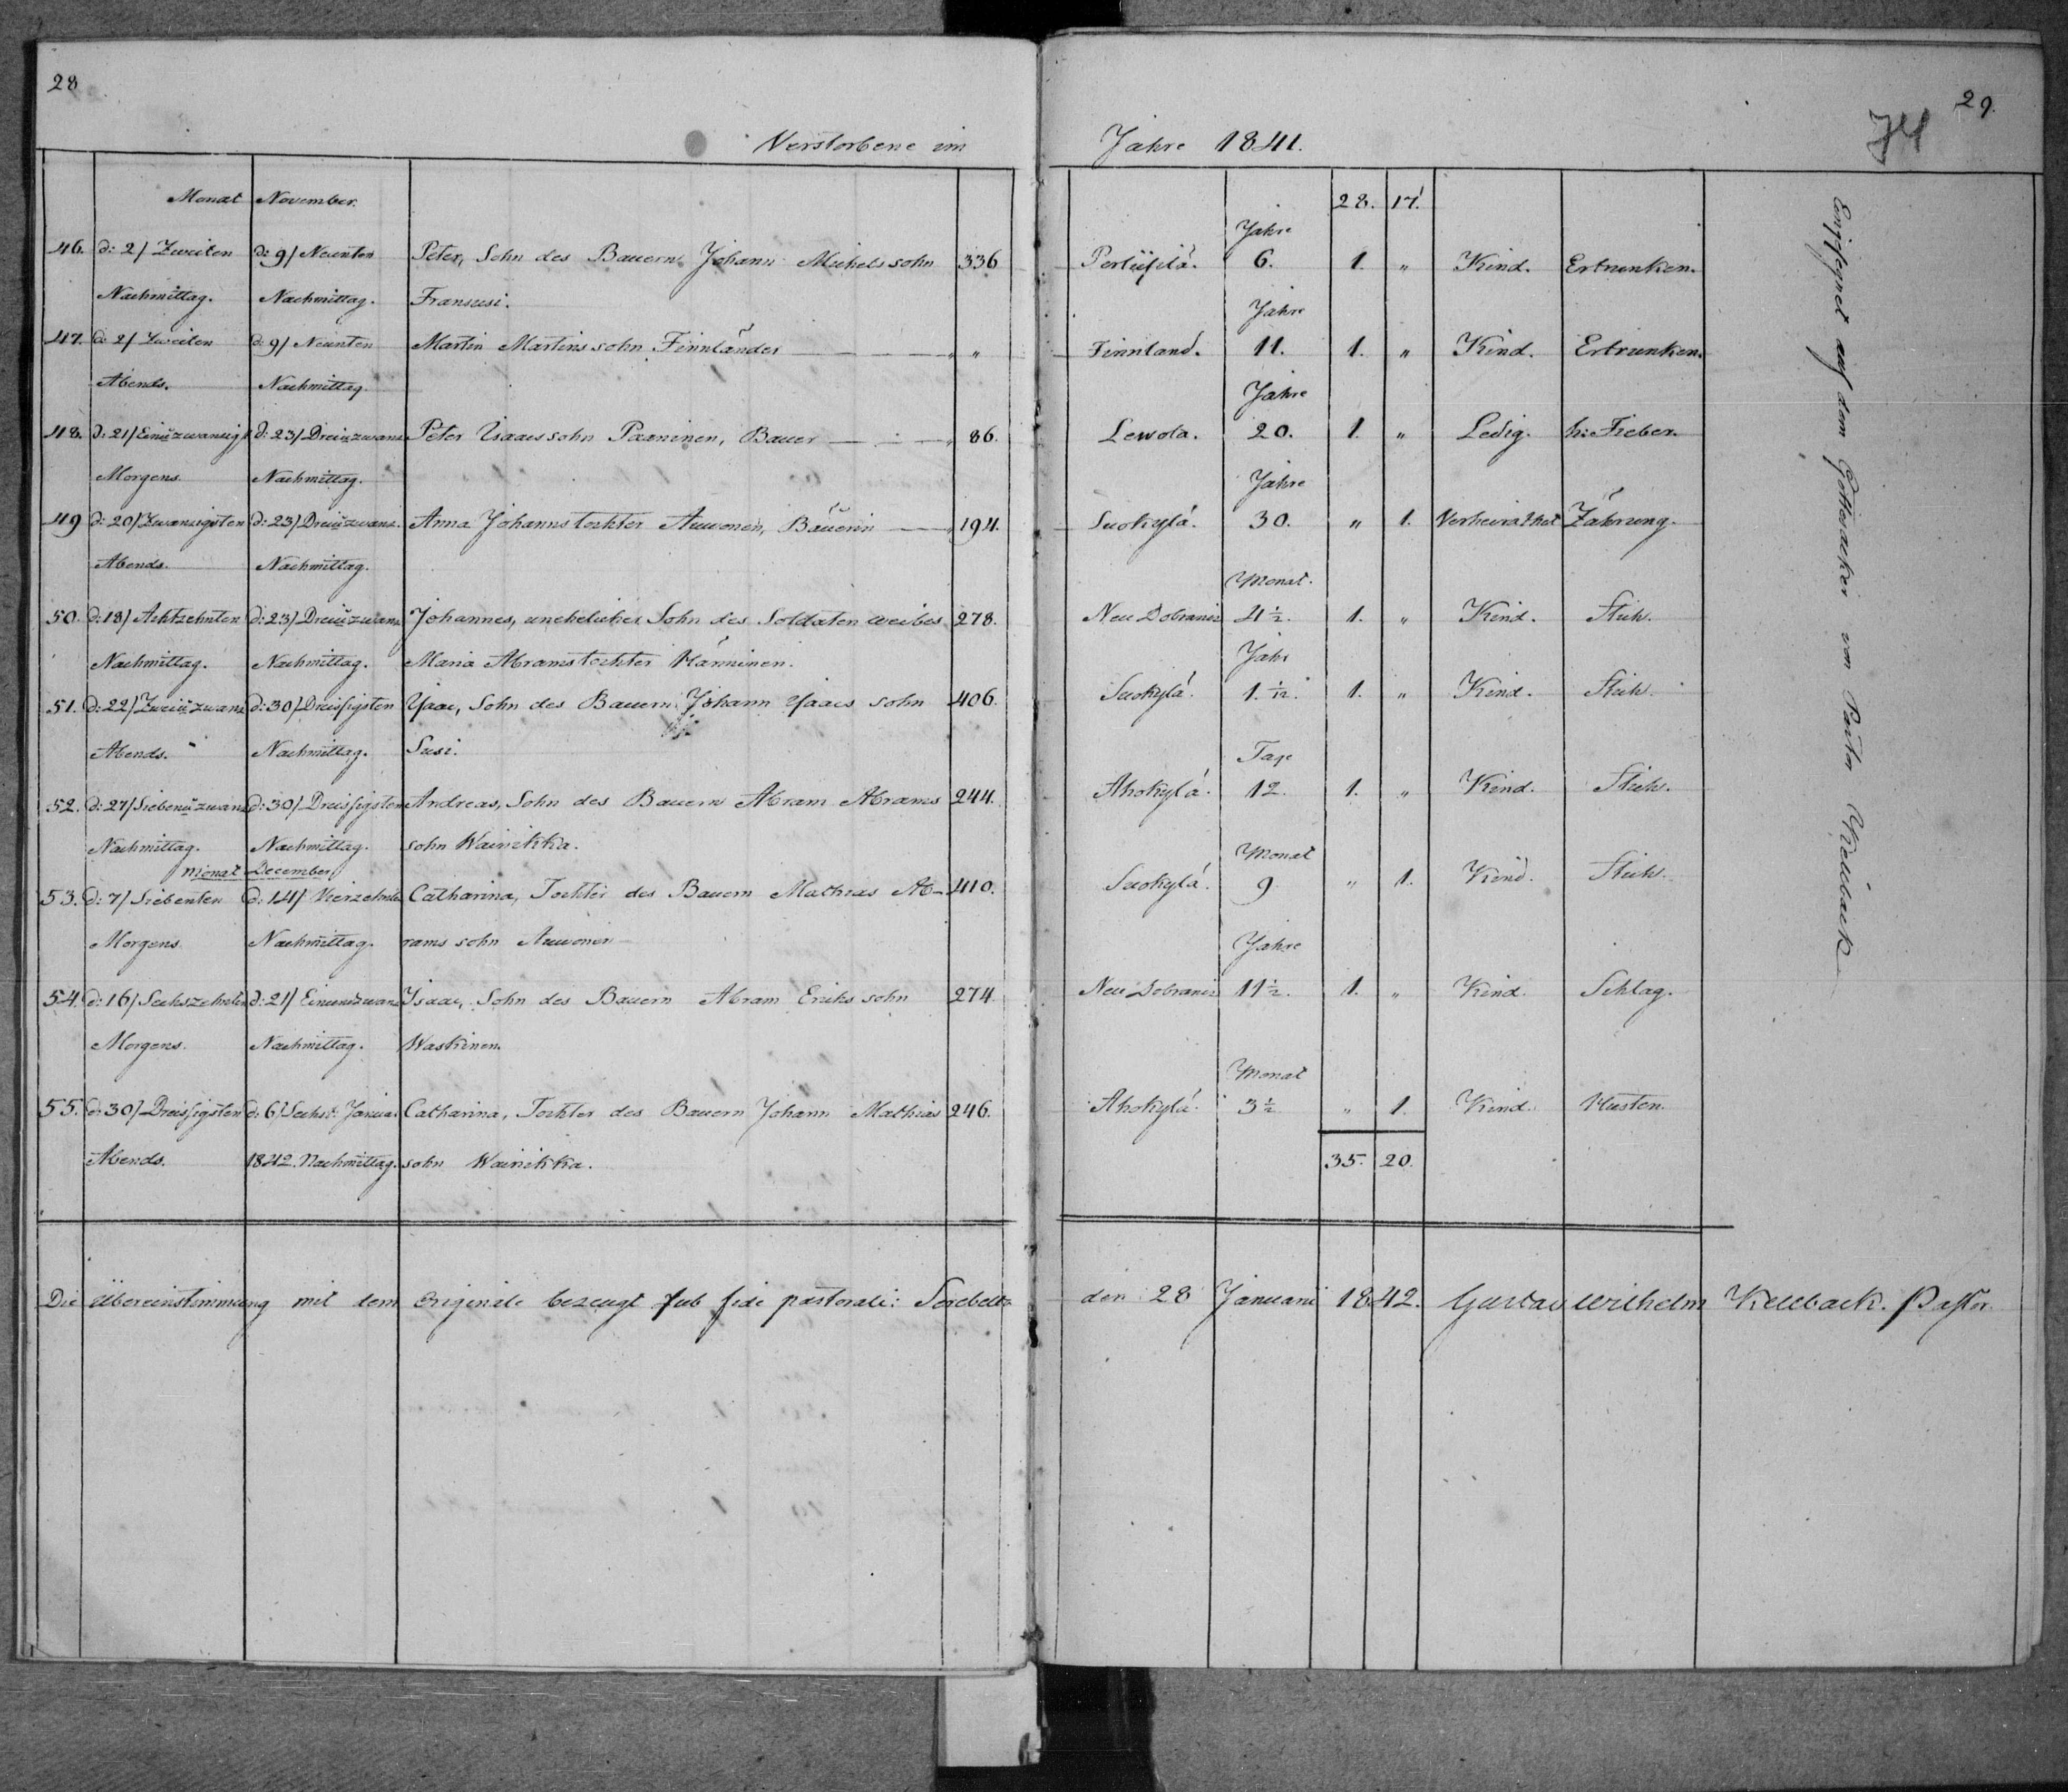 28
29.
74
Verstorbene im Jahre 1841.
Monat November.
28. 17.
Jahre
46. d: 2/ Zweiten d: 9/ Neunten Peter, Sohn des Bauern Johann Michelssohn 336 6. 1. " Kind. Ertrunken.
Nachmittag. Nachmittag. Fransusi.
Jahre
47. d: 2/ Zweiten d: 9/ Neunten Martin Martinssohn Finnländer " Finnland. 11. 1. " Kind. Ertrunken.
Abends. Nachmittag.
Jahre
48. d: 21/ Einŭzwanzigst d: 23/ Dreiŭzwanz Peter Isaacssohn Paaninen, Bauer 86. Lewola. 20. 1. " Ledig. h: Fieber.
Morgens. Nachmittag.
Jahre
49 d: 20/ Zwanzigsten d: 23/ Dreiŭzwanz. Anna Johannstochter Auwonen, Bäuerin 194. Suokylä. 30. " 1. Verheirathet Zährung.
Abends. Nachmittag.
Monat.
50. d: 18/ Achtzehnten d: 23/ Dreiŭzwanz Johannes, unehelicher Sohn des Soldatenweibes 278. Neu Dobraniz 4½. 1. " Kind. Stich.
Nachmittag. Nachmittag. Maria Abramstochter Hänninen.
Jahr
51. d: 22/ Zweiŭzwanz d: 30/ Dreissigsten Isaac, Sohn des Bauern Johann Isaacs sohn 406. Suokylä. 1. 1/12. 1. " Kind. Stich.
Abends. Nachmittag. Susi.
Tage
52. d: 27/ Siebenŭzwanz d: 30/ Dreissigsten Andreas, Sohn des Bauern Abram Abrams 244. Ahokylä. 12. 1. " Kind. Stich.
Nachmittag. Nachmittag. sohn Wainikka.
Monat December.
Monat
53. d: 7/ Siebenten d: 14/ Vierzehnten Catharina, Tochter des Bauern Mathias Ab- 410. Suokylä. 9 " 1. Kind. Stich.
Morgens. Nachmittag. rams sohn Auwonen
Jahre
54. d: 16/ Sechszehnten d: 21/ Einundzwanz Isaac, Sohn des Bauern Abram Erichs sohn 274. Neu Dobraniz 11½. 1. " Kind. Schlag.
Morgens. Nachmittag. Waskinen.
Monat
55. d: 30/ Dreissigsten d: 6/ Sechst. Januar Catharina, Tochter des Bauern Johann Mathias 246. Ahokylä. 3½ " 1. Kind. Husten.
Abends. 1842. Nachmittag. sohn Wainikka.
35. 20.
Die Übereinstimmung mit dem Originale bezeugt sub fide pastorali: den 28 Januari 1842. Gustav Wilhelm Pastor.
auf dem von